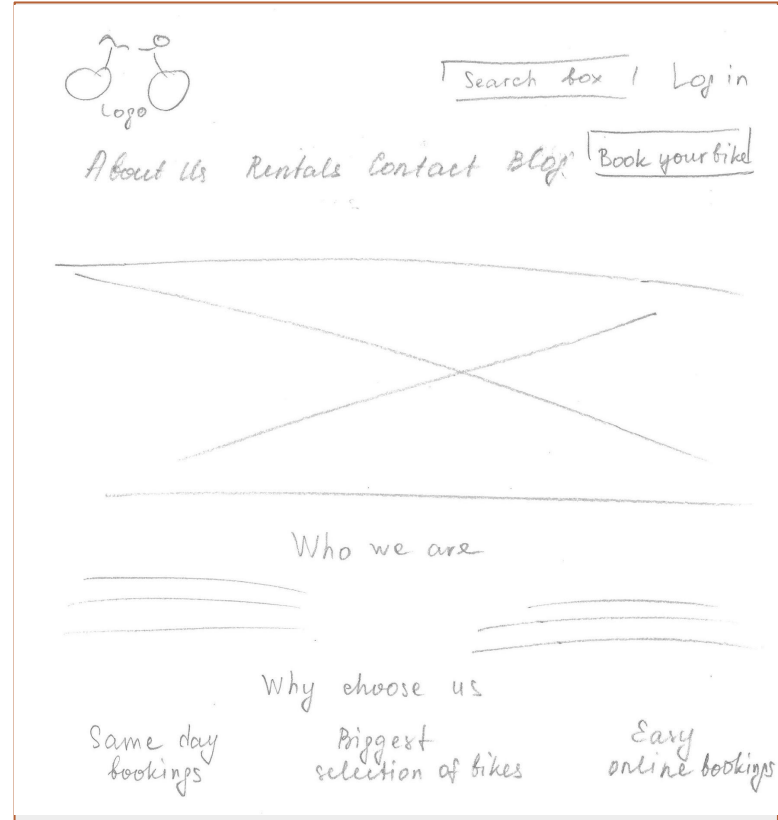 Logo
Search box
Log in
About Us Rentals Contact Blog Book your bike
Who we are
Why choose us
Same day
bookings
Biggest
selection of bikes
Easy
online bookings